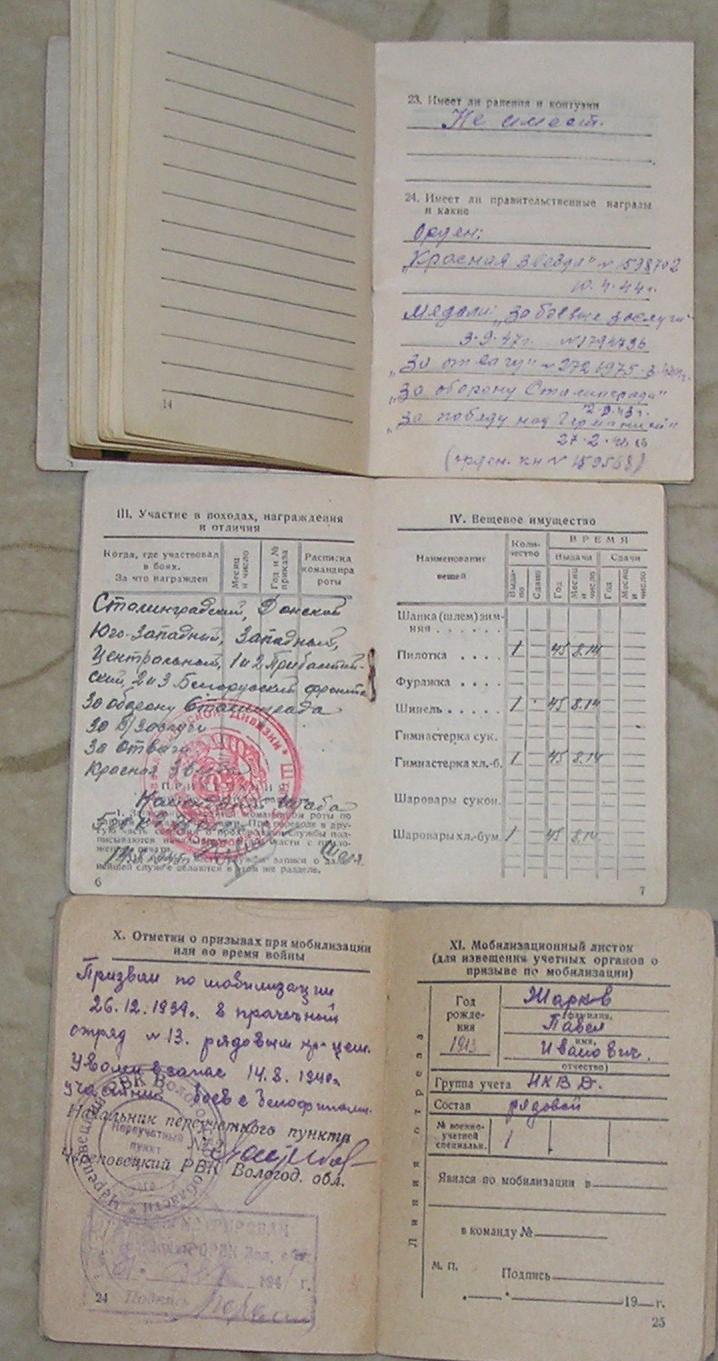 23. Имеет ли ранения и контузии
Не имеет.
24. Имеет ли правительственные награды
и какие
Орден:
"Красная звезда" № 1598702
10.4.44г.
Медали: "За боевые заслуги"
3.9.47г. № 1794736
"За отвагу" № 2721975
"За оборону Сталинграда"
"За победу над Германией"
(орден. кн № 159568)
14
III. Участие в походах, награждения
и отличия
Когда, где участвовал
в боях.
За что награжден
Месяц
и число
Год и №
приказа
Расписка
командира
роты
Сталинградский, Донской
Юго-Западный, Западный,
Центральный, 1 и 2 Прибалтий-
ский, 2 и 3 Белорусский фронта
За оборону Сталинграда
За Б/Заслуги
За Отвагу
Красная Звезда
Начальник штаба
6
IV. Вещевое имущество
Наименование
вещей
Коли-
чество
ВРЕМЯ
Выдачи
Сдачи
Выда-
но
Сдано
Год
Месяц
и
число
Год
Месяц
и
число
Шапка (шлем) зим-
няя . . . . . .
Пилотка . . . . 1 45 8.14
Фуражка . . . .
Шинель . . . . . 1 45 8.14
Гимнастерка сук.
Гимнастерка хл.-б. 1 45 8.14
Шаровары сукон.
Шаровары хл.-бум. 1 45 8.14
7
X. Отметки о призывах при мобилизации
или во время войны
Призван по мобилизации
26.12.1939г. в прачечный
отряд № 13. рядовым
Уволен в запас 14.8.1940г
участник боев с Белофинами.
Начальник переучетного пункта
Череповецкий РВК Вологод. обл.
Переучетный
пункт
24
XI. Мобилизационный листок
(для извещения учетных органов о
призыве по мобилизации)
Линия отреза
Год
рожде-
ния
1913
Жарков
фамилия,
Павел
имя,
Иванович.
отчество)
Группа учета НКВД.
Состав рядовой
№ военно-
учетной
специальн. 1
Явился по мобилизации в
в команду №
М. П.
Подпись
19 г.
25